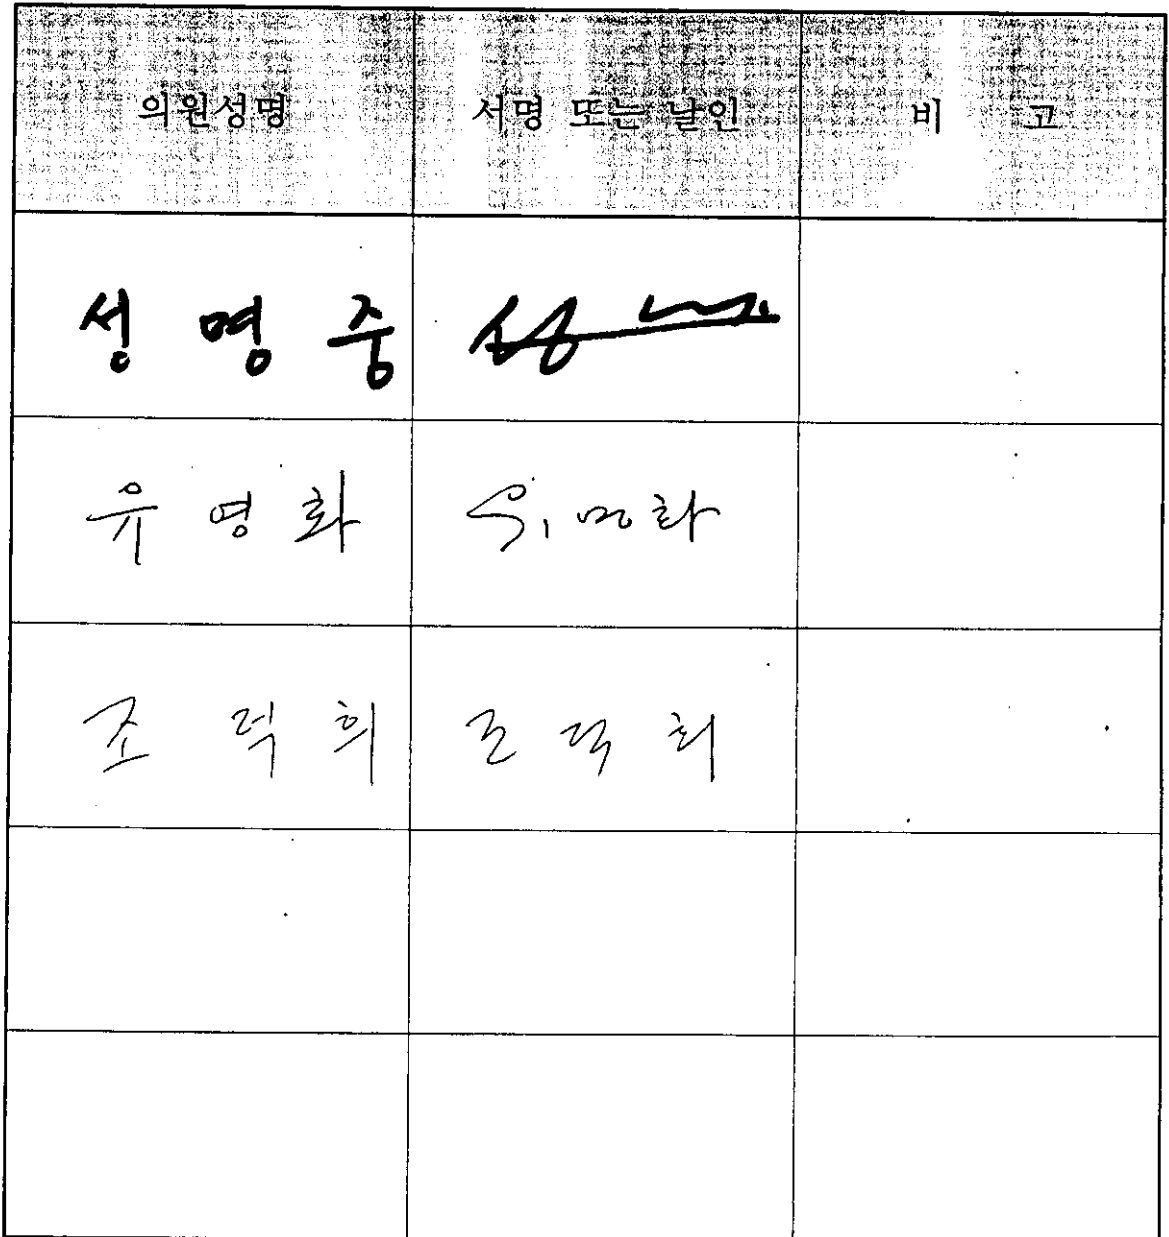 의원성명 서명 또는 날인 비 고
성 명 중
유 영 화
조 덕 희 조 덕 희